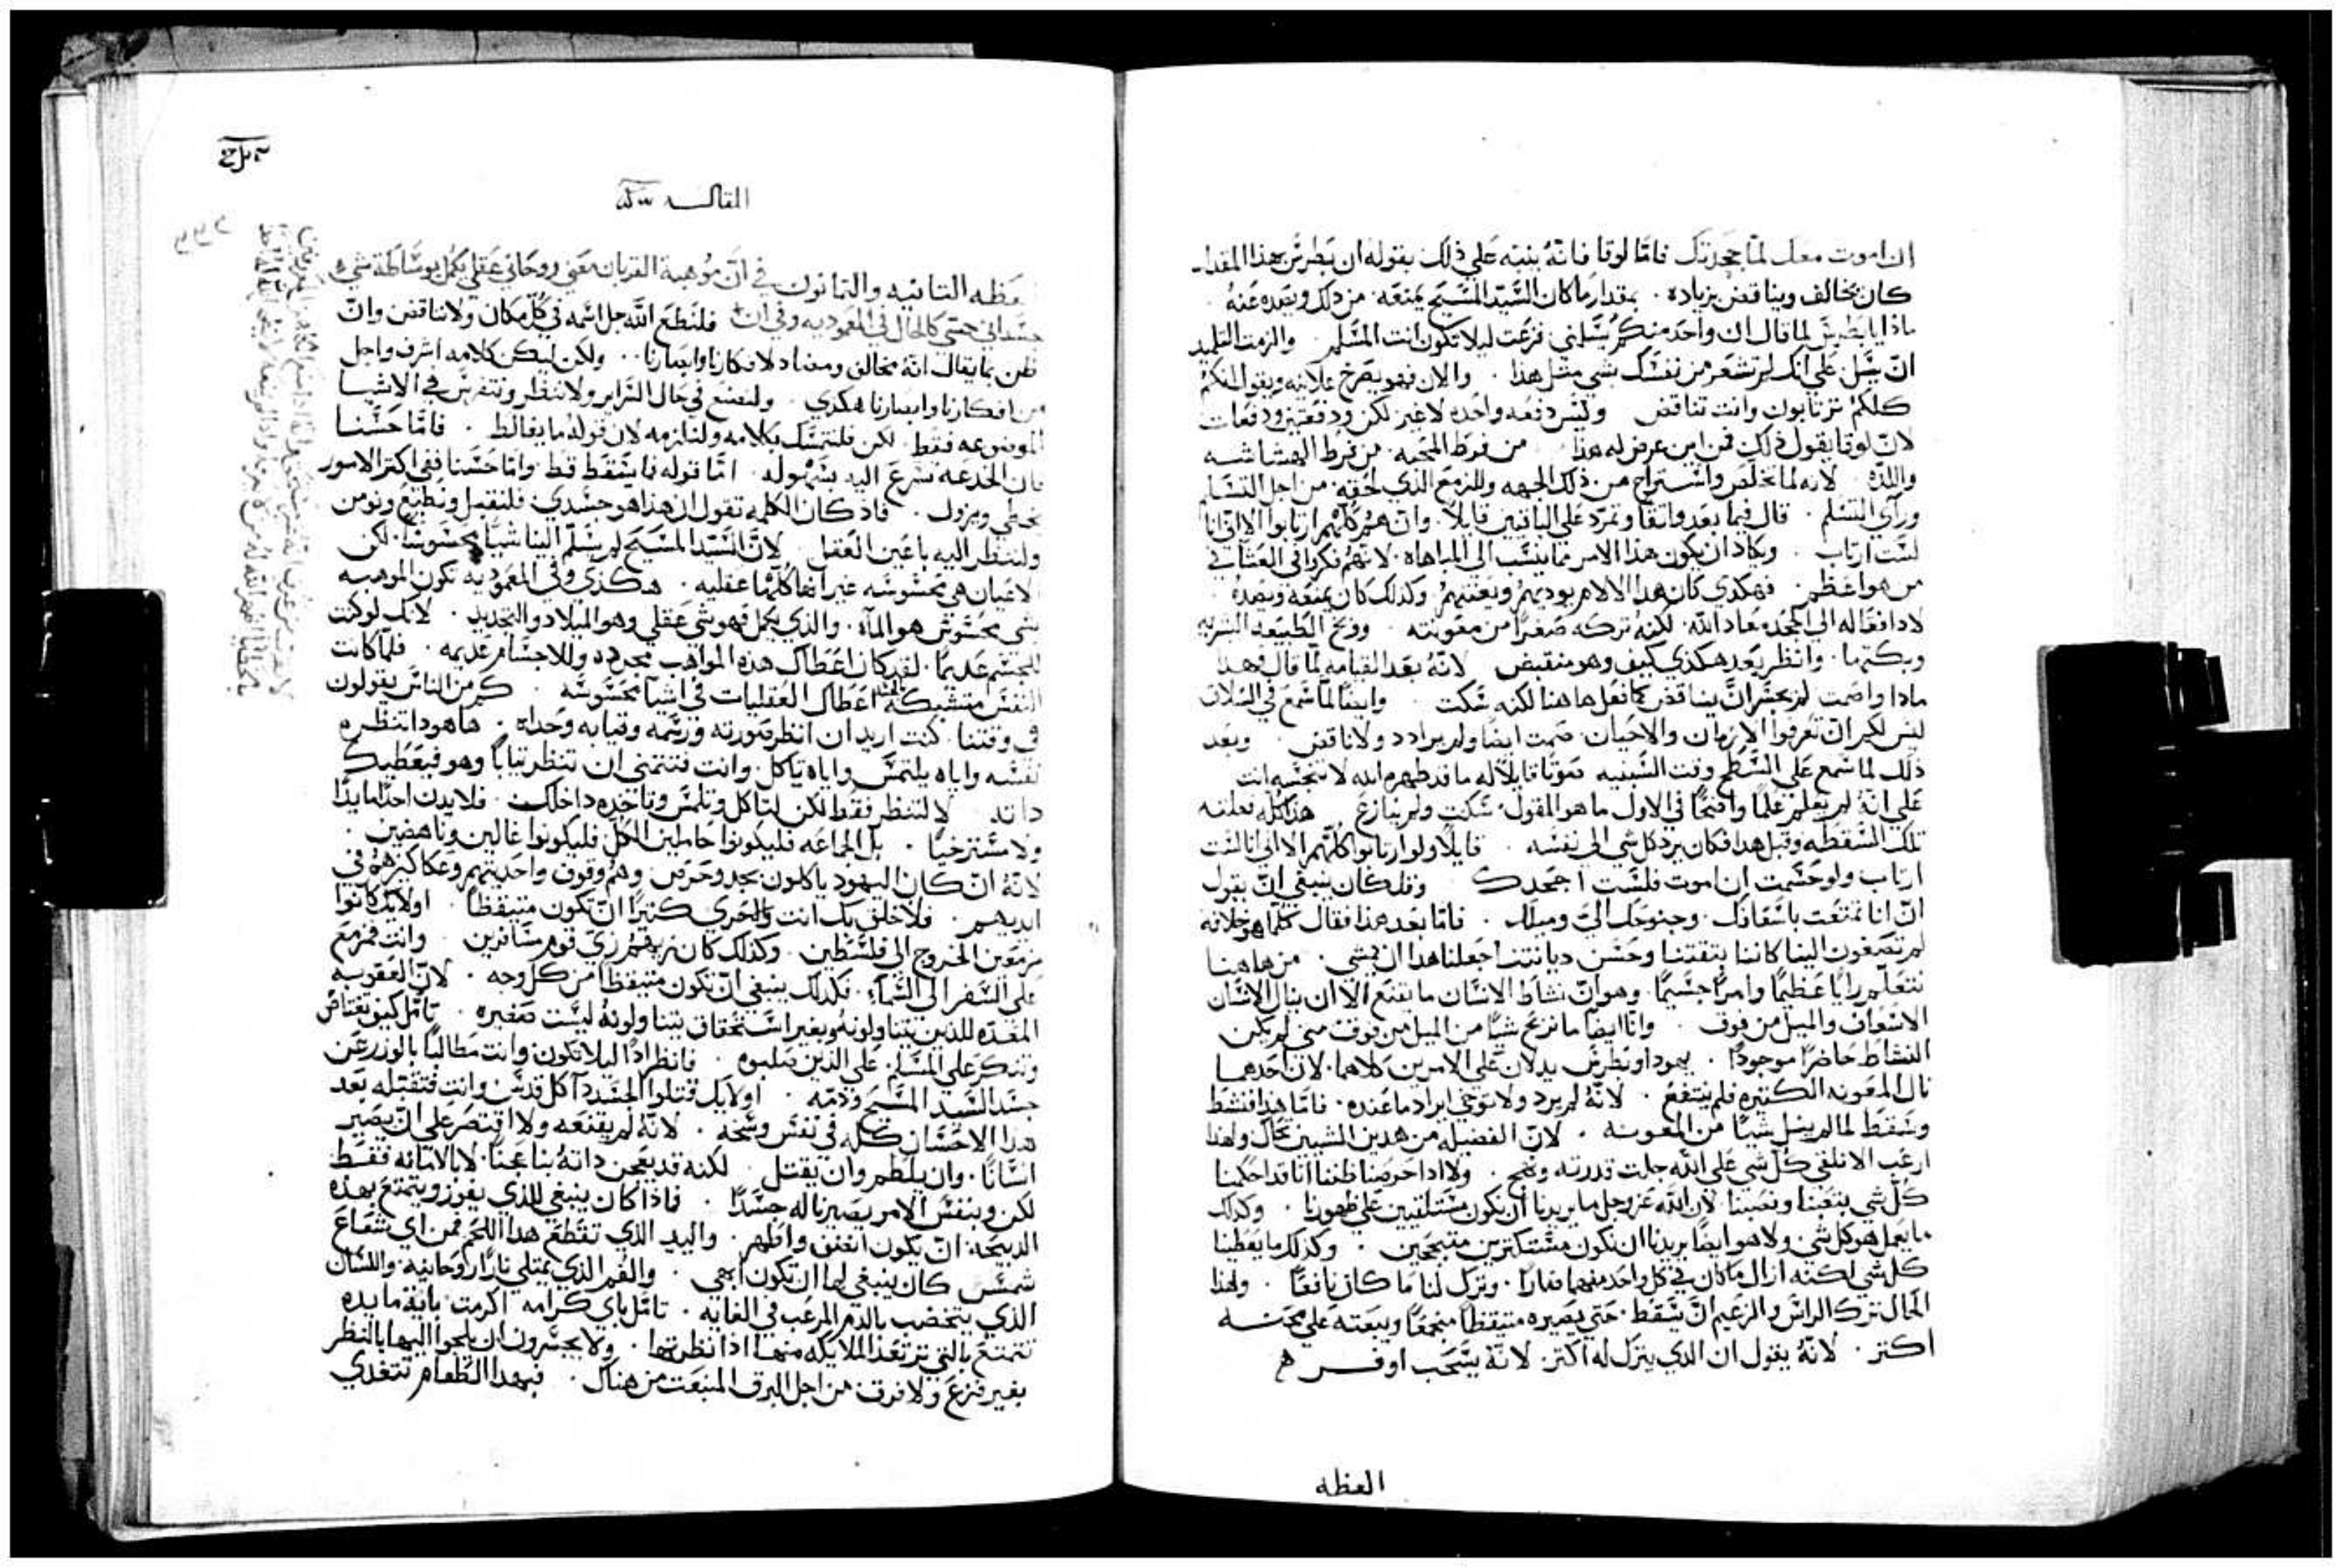 ان اموت معك لما جحدتك فاما لوقا فانه ينبه علي ذلك بقوله ان بطرس بهذا المقدار
كان يخالف ويناقض بزياده . بمقدار ما كان السيد المسيح يمنعه . من ذلك ويصده عنه
ماذا يا بطرس لما قال ان واحد منكم يسلمني فزعت ليلا تكون انت المسلم والزمت التلميد
ان يسل علي انك لم تشعر من نفسك بشي مثل هذا . والان فهو يصرخ علانيه ويقول انكم
كلكم ترتابون وانت تناقض وليس دفعه واحده لا غير لكن ودفعتين ودفعات
لان لوقا يقول ذلك فمن اين عرض له هذا من فرط المحبه . من فرط الهشاشه
واللده لانه لما تخلص واستراح من ذلك الجهه وللزمع الذي لحقه . من اجل التسليم
وراي المتسلم . قال فيما بعد واثقا وتمرد علي الباقين قايلا . وان هم كلهم ارتابوا الا اني انا
لست ارتاب . ويكاد ان يكون هذا الامر مما ينسب الي المباهاه . لانهم فكروا في العشا في
من هو اعظم فهكدي كان هدا الالام يوديهم ويعنتهم وكذلك كان يمنعه ويصده
لا دافعا له الي الجحده معاد الله . لكنه تركه صفرا من معونته . ووبخ الطبيعه البشريه
ويكتها . وانظر بعد هكذي كيف وهو منقبض لانه بعد القيامه لما قال فهدا
ماذا واصمت لم يجسر ان يناقض كما فعل هاهنا لكنه سكت . وايضا لما سمع في
ليس لكم ان تعرفوا الازمان والاحيان . صمت ايضا ولم يرادد ولا ناقض . وبعد
ذلك لما سمع علي السطح وقت السبنيه صوتا قايلا له ما قد طهره الله لا تنجسه انت
علي انه لم يعلم علما واضحا في الاول ما هو المقول . سكت ولم ينازع هذا كله فعلته
تلك السقطه وقبل هدا فكان يرد كل شي الي نفسه . قايلا ولو ارتابوا كلهم الا اني انا لست
ارتاب ولو حسمت ان اموت فلست اجحدك وقد كان ينبغي ان يقول
ان انا تمتعت باسعافك . وجنوحك الي وميلك . فاما بعد هذا فقال كلما هو خلافه
لم تصغون الينا كاننا بثقتنا وحسن ديانتنا جعلنا هدا ان يمشي . من هاهنا
نتعلم رايا عظيما وامرا جسيما . وهو ان نشاط الانسان ما يقنع الا ان ينال الانسان
الاسعاف والميل من فوق . وانا ايضا ما نربح شيا من الميل من فوق متي لم يكن
النشاط حاضرا موجودا . يهودا وبطرس يدلان علي الامرين كلاهما . لان احدهما
نال المعونه الكتيره فلم ينتفع . لانه لم يرد ولا توخي ايراد ما عنده . فاما هذا فنشط
وسقط لما لم ينل شيا من المعونه . لان الفضيله من هدين الشيين تحاك ولهدا
ارغب الا نلقي كل شي علي الله جلت قدرته ونهجع . ولا ادا حرصنا ظننا اننا قد احكمنا
كل شي بتعبنا ونصبنا لان الله عز وجل ما يريدنا ان نكون مستلقيين علي ظهورنا . وكدلك
ما يعمل هو كل شي . ولا هو ايضا يريدنا ان نكون مستكترين متبجحين . وكذلك ما يعطينا
كل شي لكنه ازال ما كان في كل واحد منهما ضارا . وترك لنا ما كان نافعا . ولهذا
الحال ترك الراس والزعيم ان يسقط . حتي يصيره متيقظا متجمعا ويبعته علي محبته
اكتر . لانه يقول ان الدي يترك له اكتر . لانه يستحب اوفر هـ
العظه
المقاله
العظه التانيه والتمانون في ان موهبة القربان معني روحاني عقلي يكمل بوساطة شي
جسداني حسي كالحال في المعموديه وفي ان فلنطع الله جل اسمه في كل مكان ولا نناقض وان
ظن بما يقال انه مخالف ومضاد لافكارنا وابصارنا . ولكن ليكن كلامه اشرف واجل
من افكارنا وابصارنا هكدي . ولنصنع في حال السراير ولا ننظر ونتفرس في الاشيا
الموضوعه فقط . لكن فلنتمسك بكلامه ولنلازمه لان قوله ما يغالط . فاما حسنا
فان الخدعه تسرع اليه بسهوله . اما قوله فما يسقط قط . واما حسنا ففي اكثر الامور
يخطي ويزول . فاد كان الكلمه تقول ان هذا هو جسدي . فلنقبل ونطيع ونومن
ولننظر اليه باعين العقل لان السيد المسيح لم يسلم الينا شيا محسوسا . لكن
الاعيان هي محسوسه غير انها كلها عقليه . هكذي وفي المعموديه تكون الموهبه
بشي محسوس هو الما . والذي يكمل فهو شي عقلي وهو الميلاد والتجديد . لانك لو كنت
للجسم عديما . لقد كان اعطاك هده المواهب مجرده وللاجسام عديمه . فلما كانت
النفس متشبكه بالجسد اعطاك العقليات في اشيا محسوسه . كم من الناس يقولون
في وقتنا . كنت اريد ان انظر صورته ورسمه وثيابه وحداه . هاهو دا تنظره
نفسه واياه يلتمس واياه تاكل . وانت فتتمني ان تنظر ثيابا وهو فيعطيك
داته لا لتنظر فقط لكن لتاكل وتلمس وتاخده داخلك . فلا يدن احدا مايدا
ولا مسترخيا . بل الجماعه فليكونوا حاملين الكل فليكونوا غالين وناهضين .
لانه ان كان اليهود ياكلون بجد وحرص وهم وقوف واحديتهم وعكاكيزهم في
ايديهم . فلاخلق بك انت والحري كثيرا ان تكون متيقظا . اولايك كانوا
مزمعين الخروج الي فلسطين . وكذلك كان زيهم زي قوم مسافرين . وانت فمزمع
علي السفر الي السماء . فكدلك ينبغي ان تكون متيقظا من كل وجه . لان العقوبه
المعده للذين يتناولونه بغير استحقاق يتناولونه ليست صغيره . تامل كيف تغتاض
وتتنكر علي المسلم . علي الذين صلبوه . فانظر ادا ليلا تكون وانت مطالبا بالوزر عن
جسد السيد المسيح ودمه . اولايك قتلوا الجسد دا كل قدس وانت فتتقبله بعد
هدا الاحسان كله في نفس وسخه . لانه لم يقنعه ولا اقتصر علي ان يصير
انسانا . وان يلطم وان يقتل . لكنه قد يعجن داته بنا عجنا . لا بالامانه فقط
لكن وبنفس الامر يصيرنا له جسدا . فاذا كان ينبغي للذي يفوز ويتمتع بهذه
الدبيحه . ان يكون انقي واطهر . واليد الذي تقطع هدا اللحم فمن اي شعاع
شمس كان ينبغي لها ان تكون ابهي . والفم الذي يمتلي نارا روحانيه واللسان
الذي يتخضب بالدم المرعب في الغايه . تامل باي كرامه اكرمت . باية مايده
تتمتع بالتي ترتعد الملايكه منها ادا نظرتها . ولا يجسرون ان يلمحوا اليها بالنظر
بغير فزع ولا فرق . من اجل البرق المنبعت من هناك . فبهدا الطعام نتغدي